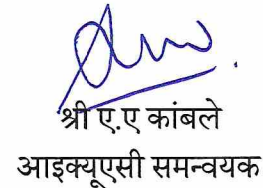 श्री ए.ए कांबले
आइक्यूएसी समन्वयक